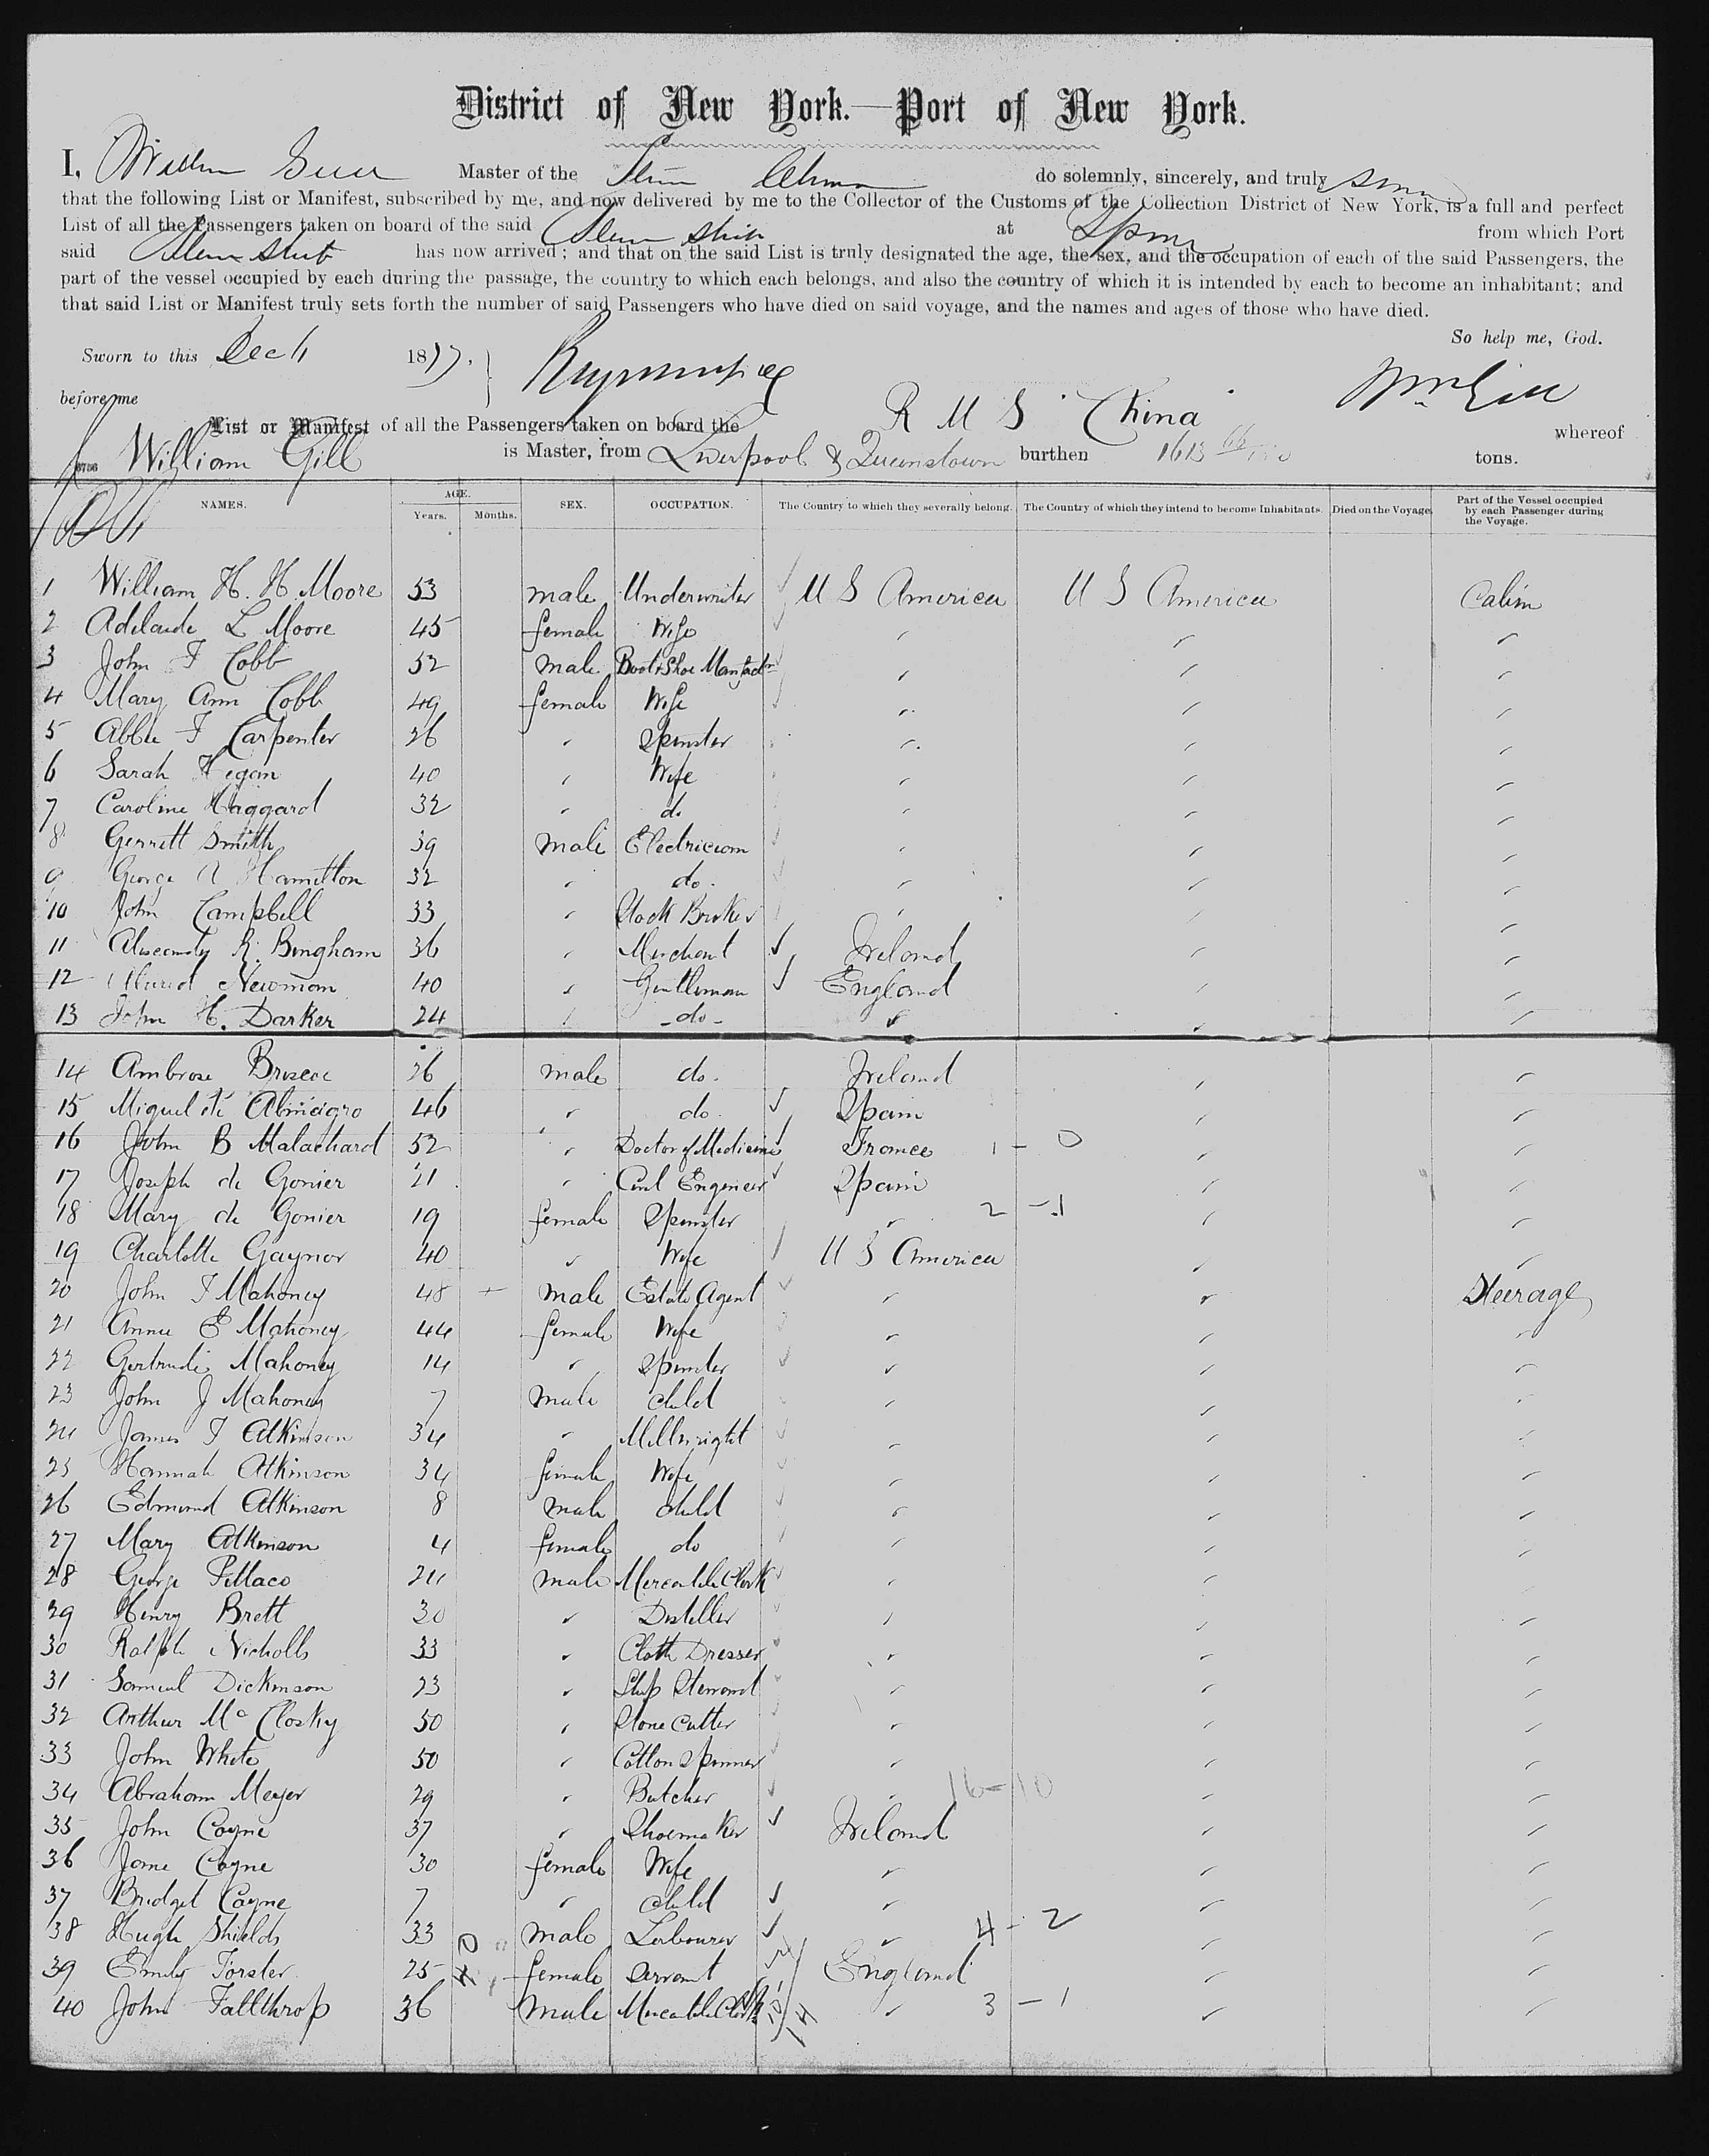 District of New York.—Port of New York.
I, William Gill Master of the Steam China do solemnly, sincerely, and truly swear
that the following List or Manifest, subscribed by me, and now delivered by me to the Collector of the Customs of the Collection District of New York, is a full and perfect
List of all the Passengers taken on board of the said Steam Ship at from which Port
said Steam Ship has now arrived; and that on the said List is truly designated the age, the sex, and the occupation of each of the said Passengers, the
part of the vessel occupied by each during the passage, the country to which each belongs, and also the country of which it is intended by each to become an inhabitant; and
that said List or Manifest truly sets forth the number of said Passengers who have died on said voyage, and the names and ages of those who have died.
So help me, God.
Sworn to this Dec 1877.
before me Wm Gill
List or Manifest of all the Passengers taken on board the R M S "China" whereof
William Gill is Master, from Liverpool & Queenstown burthen 1613 66/100 tons.
NAMES. AGE. SEX. OCCUPATION. The Country to which they severally belong. The Country of which they intend to become Inhabitants. Died on the Voyage. Part of the Vessel occupied by each Passenger during the Voyage.
Years. Months.
1 William H. H. Moore 53 male Underwriter U S America U S America Cabin
2 Adelaide L Moore 45 female Wife
3 John F Cobb 52 male Boot & Shoe Manfactr
4 Mary Ann Cobb 49 female Wife
5 Abbie F Carpenter 26 " Spinster
6 Sarah Hegan 40 " Wife
7 Caroline Haggard 32 " do
8 Gerritt Smith 39 male Electrician
9 George A Hamilton 32 " do.
10 John Campbell 33 " Stock Broker
11 R. Bingham 36 " Merchant Ireland
12 Alured Newman 40 " Gentleman England
13 John H. Darker 24 " -do- "
14 Ambrose Briscoe 26 male do. Ireland
15 Miguel de Almagro 46 " do. Spain
16 John B Malachard 52 " Doctor of Medicine France 1 - 0
17 Joseph de Gonier 21 " Civil Engineer Spain
18 Mary de Gonier 19 female Spinster " 2 - 1
19 Charlotte Gaynor 40 " Wife U S America
20 John F Mahoney 48 male Estate Agent " " Steerage
21 Annie E Mahoney 44 female Wife
22 Gertrude Mahoney 14 " Spinster
23 John J Mahoney 7 male child
24 James F Atkinson 34 " Millwright
25 Hannah Atkinson 34 female Wife
26 Edmund Atkinson 8 male child
27 Mary Atkinson 4 female do
28 George 24 male Mercantile Clerk
29 Henry Brett 30 " Distiller
30 Ralph Nicholls 33 " Cloth Dresser
31 Samuel Dickinson 23 " Ship Steward
32 Arthur McClosky 50 " Stone Cutter
33 John White 50 " Cotton Spinner
34 Abraham Meyer 29 " Butcher " 16 - 10
35 John Coyne 37 " Shoemaker Ireland
36 Jane Coyne 30 female Wife
37 Bridget Coyne 7 " child
38 Hugh Shields 33 male Labourer " 4 - 2
39 Emily Forster 25 female Servant England
40 John Fallthrop 36 male Mercantile Clerk " 3 - 1